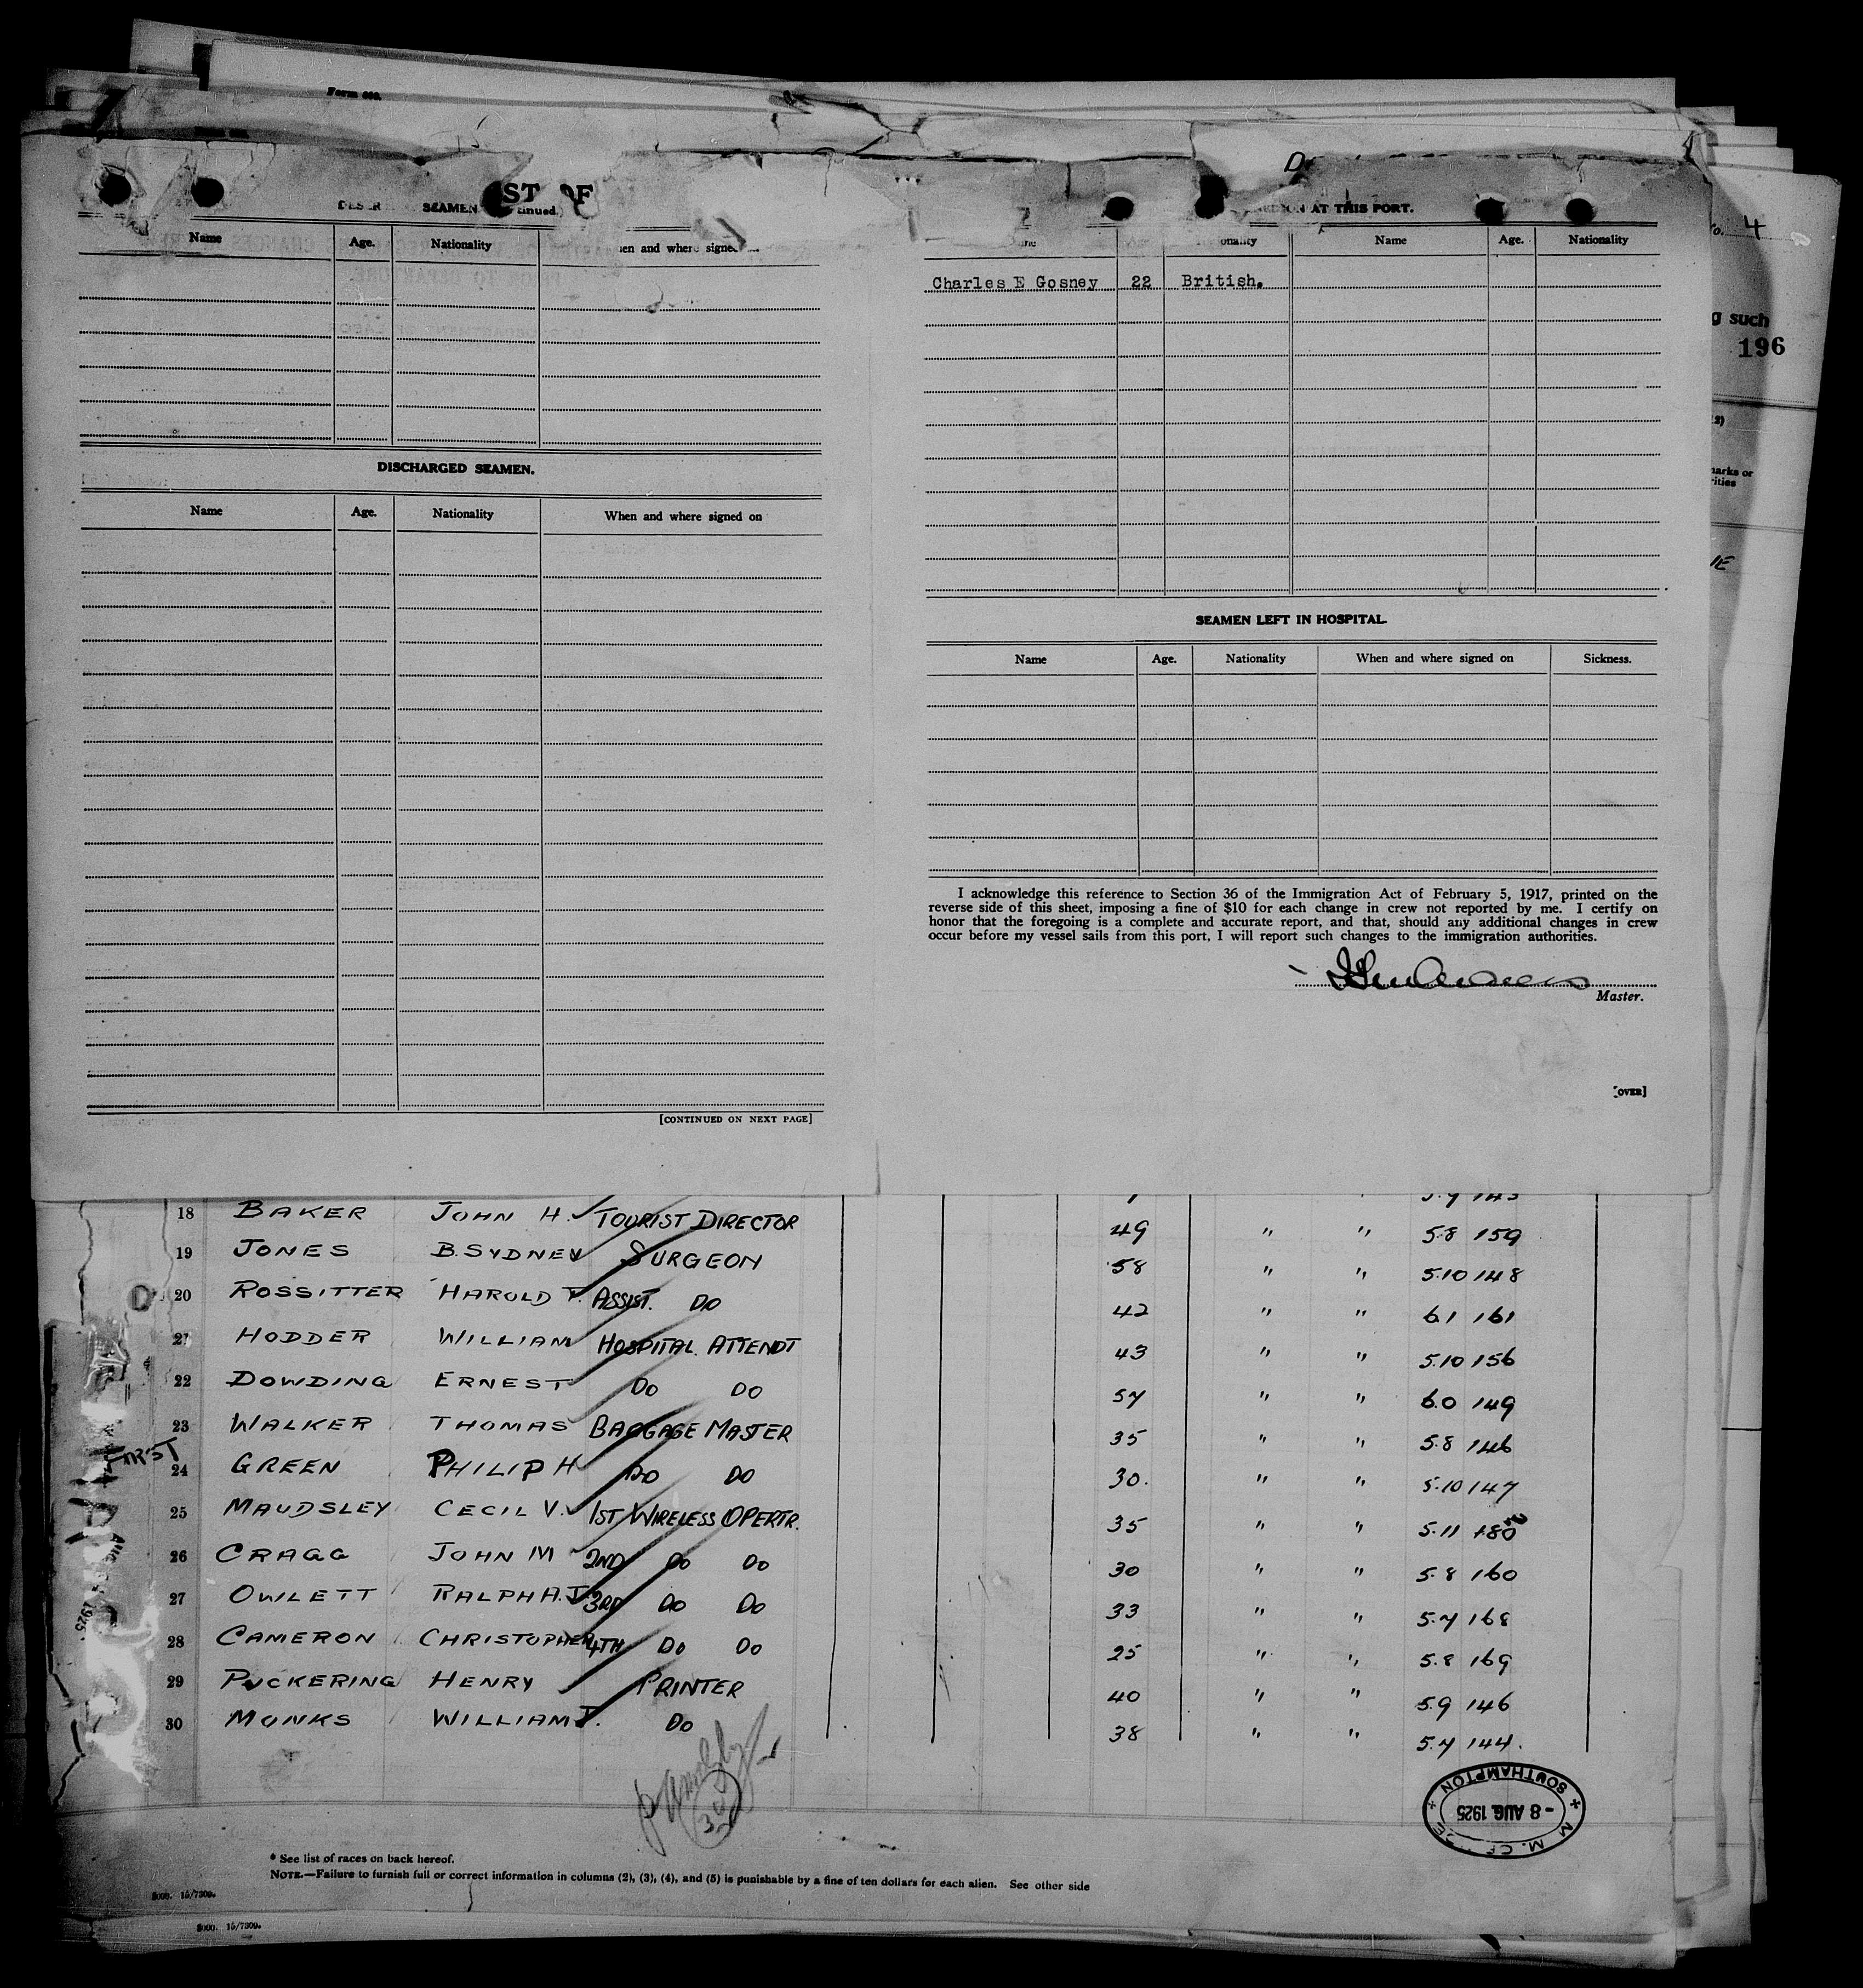 Form 600.
D
ST OF
SEAMEN
tinued.)
Name Age. Nationality en and where signed
DISCHARGED SEAMEN.
Name Age. Nationality When and where signed on
[CONTINUED ON NEXT PAGE]
AT THIS PORT.
Name Age. Nationality
Charles E Gosney 22 British.
SEAMEN LEFT IN HOSPITAL.
Name Age. Nationality When and where signed on Sickness.
I acknowledge this reference to Section 36 of the Immigration Act of February 5, 1917, printed on the
reverse side of this sheet, imposing a fine of $10 for each change in crew not reported by me. I certify on
honor that the foregoing is a complete and accurate report, and that, should any additional changes in crew
occur before my vessel sails from this port, I will report such changes to the immigration authorities.
Master.
[OVER]
4
g such
196
18 BAKER JOHN H. TOURIST DIRECTOR 49 " " 5.8 159
19 JONES B. SYDNEY SURGEON 58 " " 5.10 148
20 ROSSITTER HAROLD T. ASSIST. DO 42 " " 6.1 161
21 HODDER WILLIAM HOSPITAL ATTENDT 43 " " 5.10 156
22 DOWDING ERNEST DO DO 57 " " 6.0 149
23 WALKER THOMAS BAGGAGE MASTER 35 " " 5.8 146
24 GREEN PHILIP H DO DO 30. " " 5.10 147
25 MAUDSLEY CECIL V. 1ST WIRELESS OPERTR. 35 " " 5.11 180
26 CRAGG JOHN M 2ND DO DO 30 " " 5.8 160
27 OWLETT RALPH A.J. 3RD DO DO 33 " " 5.7 168
28 CAMERON CHRISTOPHER 4TH DO DO 25 " " 5.8 169
29 PUCKERING HENRY PRINTER 40 " " 5.9 146
30 MONKS WILLIAM J. DO 38 " " 5.7 144.
SOUTHAMPTON
- 8 AUG. 1925
* See list of races on back hereof.
NOTE.—Failure to furnish full or correct information in columns (2), (3), (4), and (5) is punishable by a fine of ten dollars for each alien. See other side
5000. 15/7309.
5000. 15/7309.